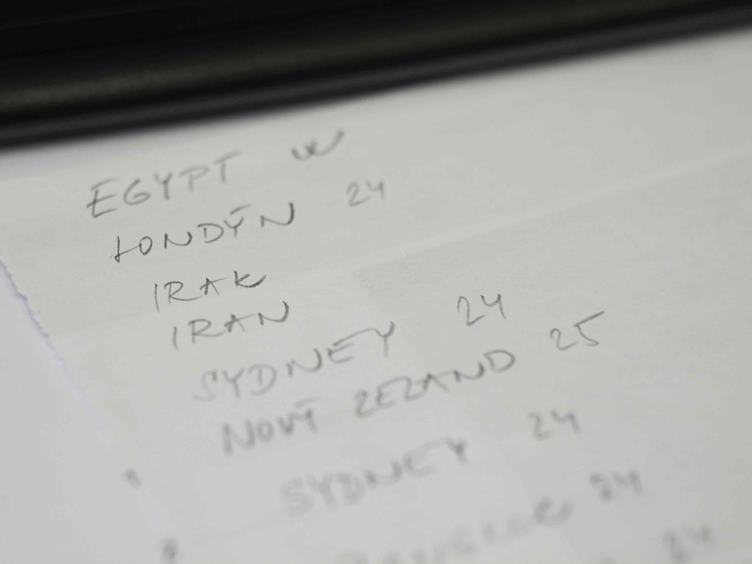 EGYPT
LONDÝN 24
IRAK
IRAN
SYDNEY 24
NOVÝ ZEZAND 25
SYDNEY 24
BANGKOK 24
24